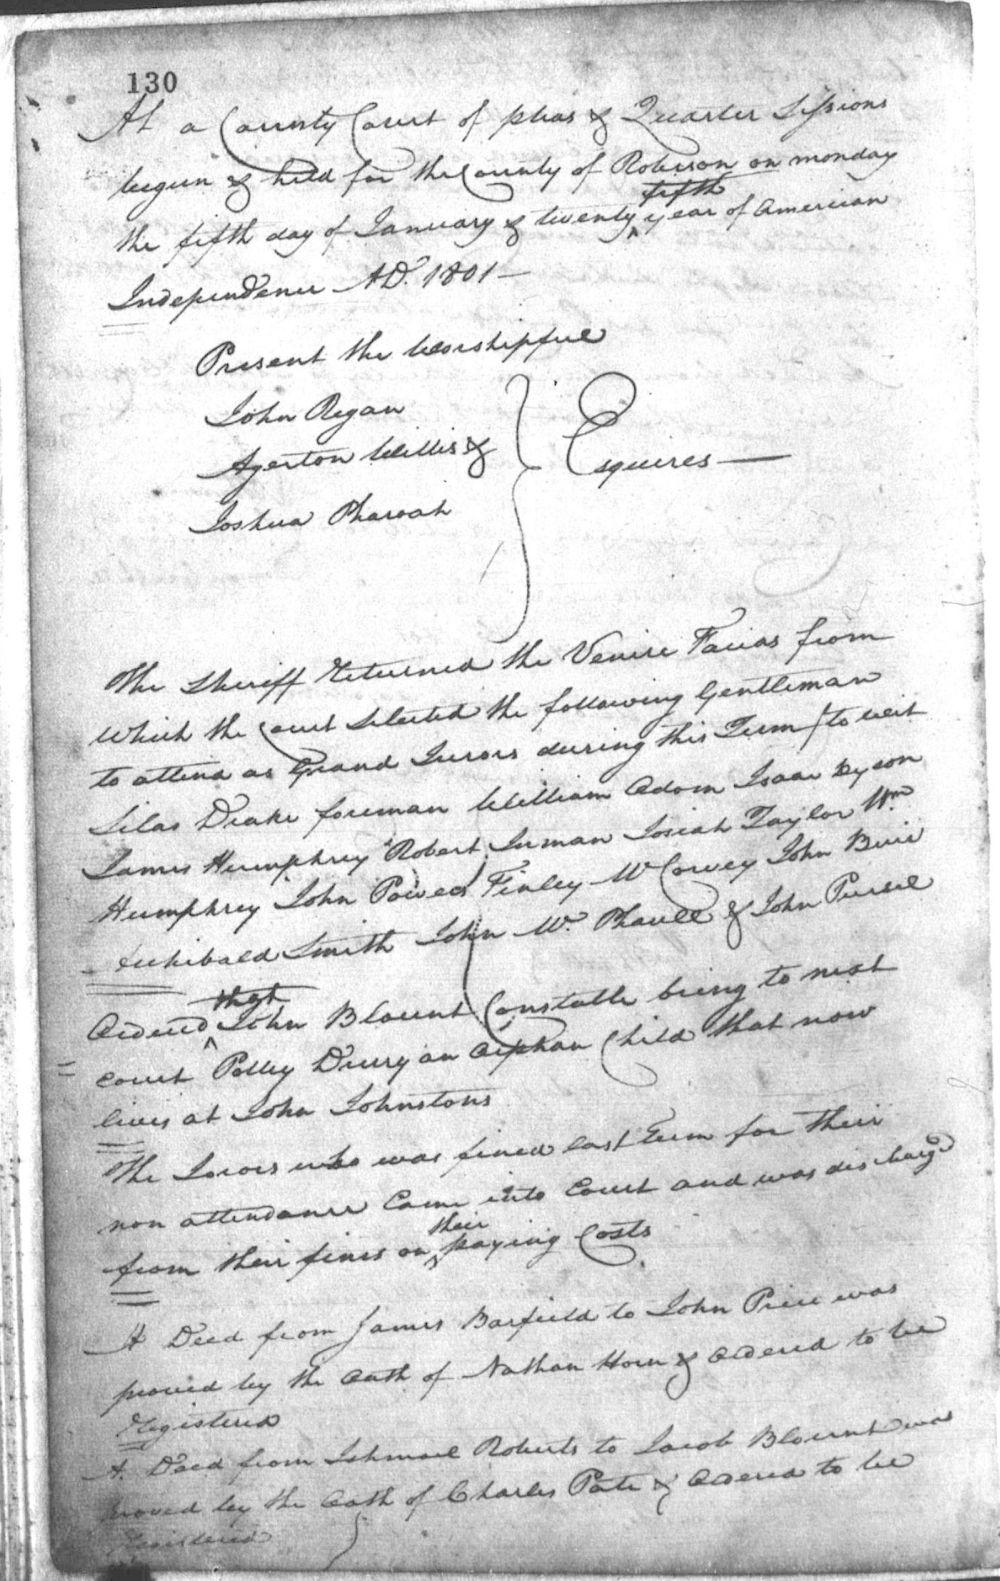 130
At a County Court of pleas & Quarter Sessions
begun & held for the County of Roberson on monday
the fifth day of January & twenty fifth year of American
Independence AD. 1801 —
Present the Worshipful
John Regan
Agerton Willis &
Joshua Pharoah
Esquires —
The Sheriff returned the Venire Facias from
Which the Court Selected the following Gentleman
to attend as Grand Jurors during this Term (to wit
Silas Drake foreman William Odom Isaac
James Humphrey Robert Inman Josiah Taylor Wm
Humphrey John Powers Finley McCorvey John Buie
Archibald Smith John Mc. Phaull & John Pursel
Ordered that John Blount Constable bring to next
court Polley Drury an Orphan Child that now
lives at John Johnstons
The Jurors who was fined last Term for their
non attendance Came into Court and was discharg'd
from their fines on their paying Costs
A Deed from James Barfield to John Price was
proved by the Oath of Nathan Horn & Ordered to be
Registered
A. Deed from Ishmael Roberts to Jacob Blount was
proved by the Oath of Charles Pate & Ordered to be
Registered